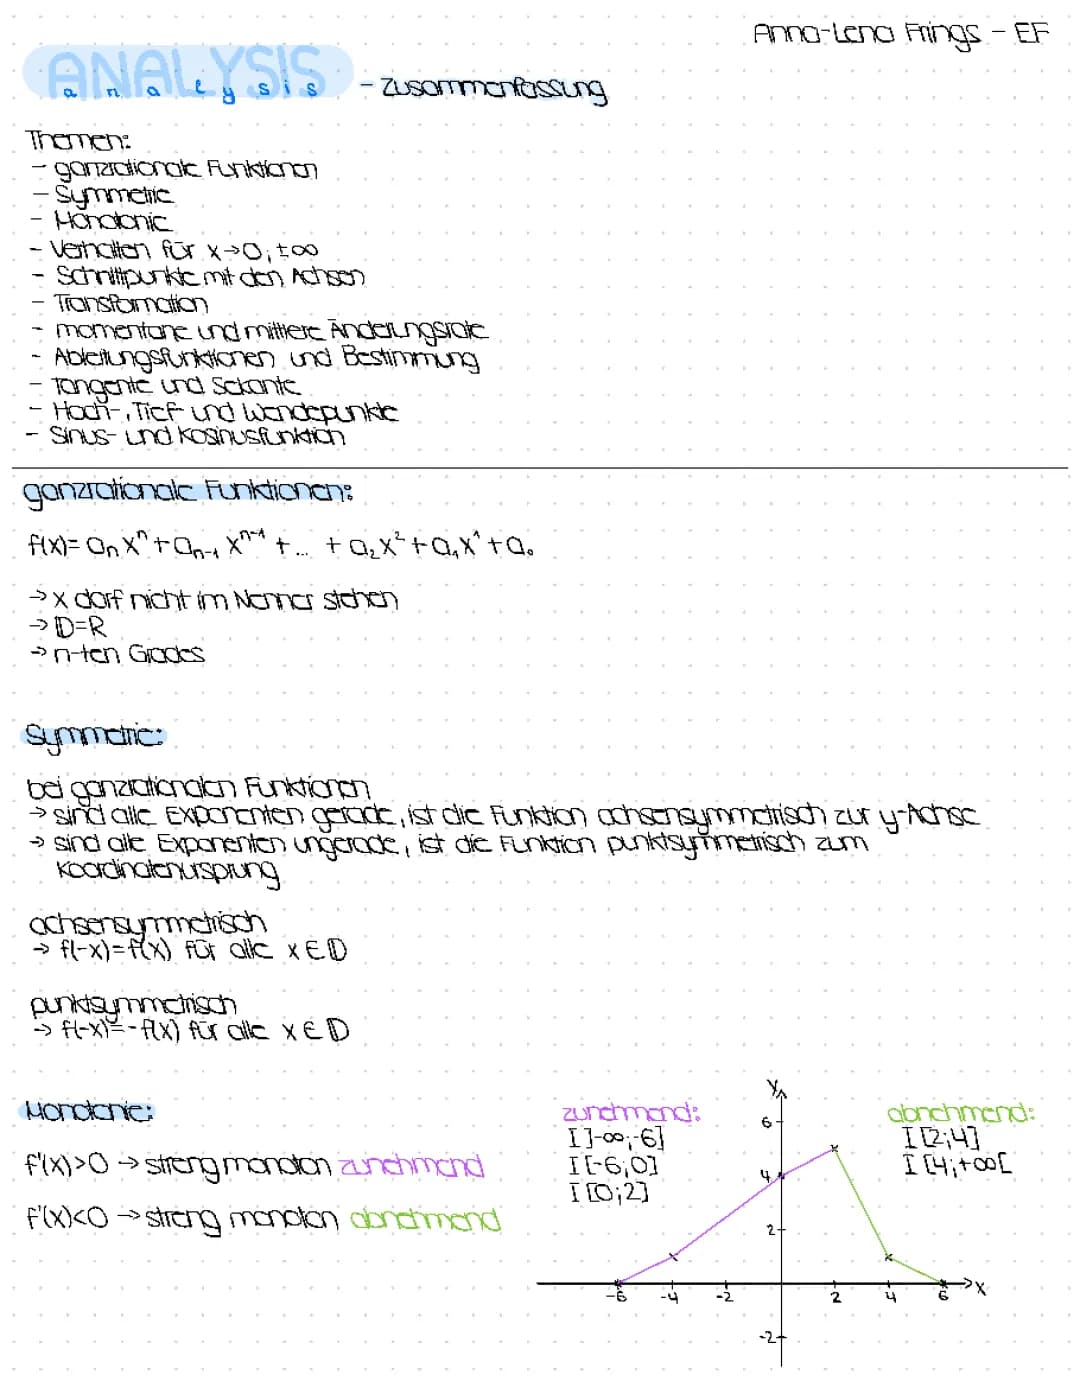 Anna-Lena Frings - EF
ANALYSIS
analysis - Zusammenfassung
Themen:
- ganzrationale Funktionen
- Symmetrie
- Monotonie
- Verhalten für x→0; ±∞
- Schnittpunkte mit den Achsen
- Transformation
- momentane und mittlere Änderungsrate
- Ableitungsfunktionen und Bestimmung
- Tangente und Sekante
- Hoch-, Tief- und Wendepunkte
- Sinus- und Kosinusfunktion
ganzrationale Funktionen:
f(x)= aₙxⁿ+aₙ₋₁xⁿ⁻¹+... +a₂x²+a₁x¹+a₀
→ x darf nicht im Nenner stehen
→ 𝔻=ℝ
→ n-ten Grades
Symmetrie:
bei ganzrationalen Funktionen
→ sind alle Exponenten gerade, ist die Funktion achsensymmetrisch zur y-Achse
→ sind alle Exponenten ungerade, ist die Funktion punktsymmetrisch zum
Koordinatenursprung
achsensymmetrisch
→ f(-x)=f(x) für alle x∈𝔻
punktsymmetrisch
→ f(-x)=-f(x) für alle x∈𝔻
Monotonie:
f'(x)>0 → streng monoton zunehmend
f'(x)<0 → streng monoton abnehmend
zunehmend:
I ]-∞;-6]
I [-6;0]
I [0;2]
abnehmend:
I [2;4]
I [4;+∞[
y
6
4
2
-6 -4 -2 2 4 6 x
-2